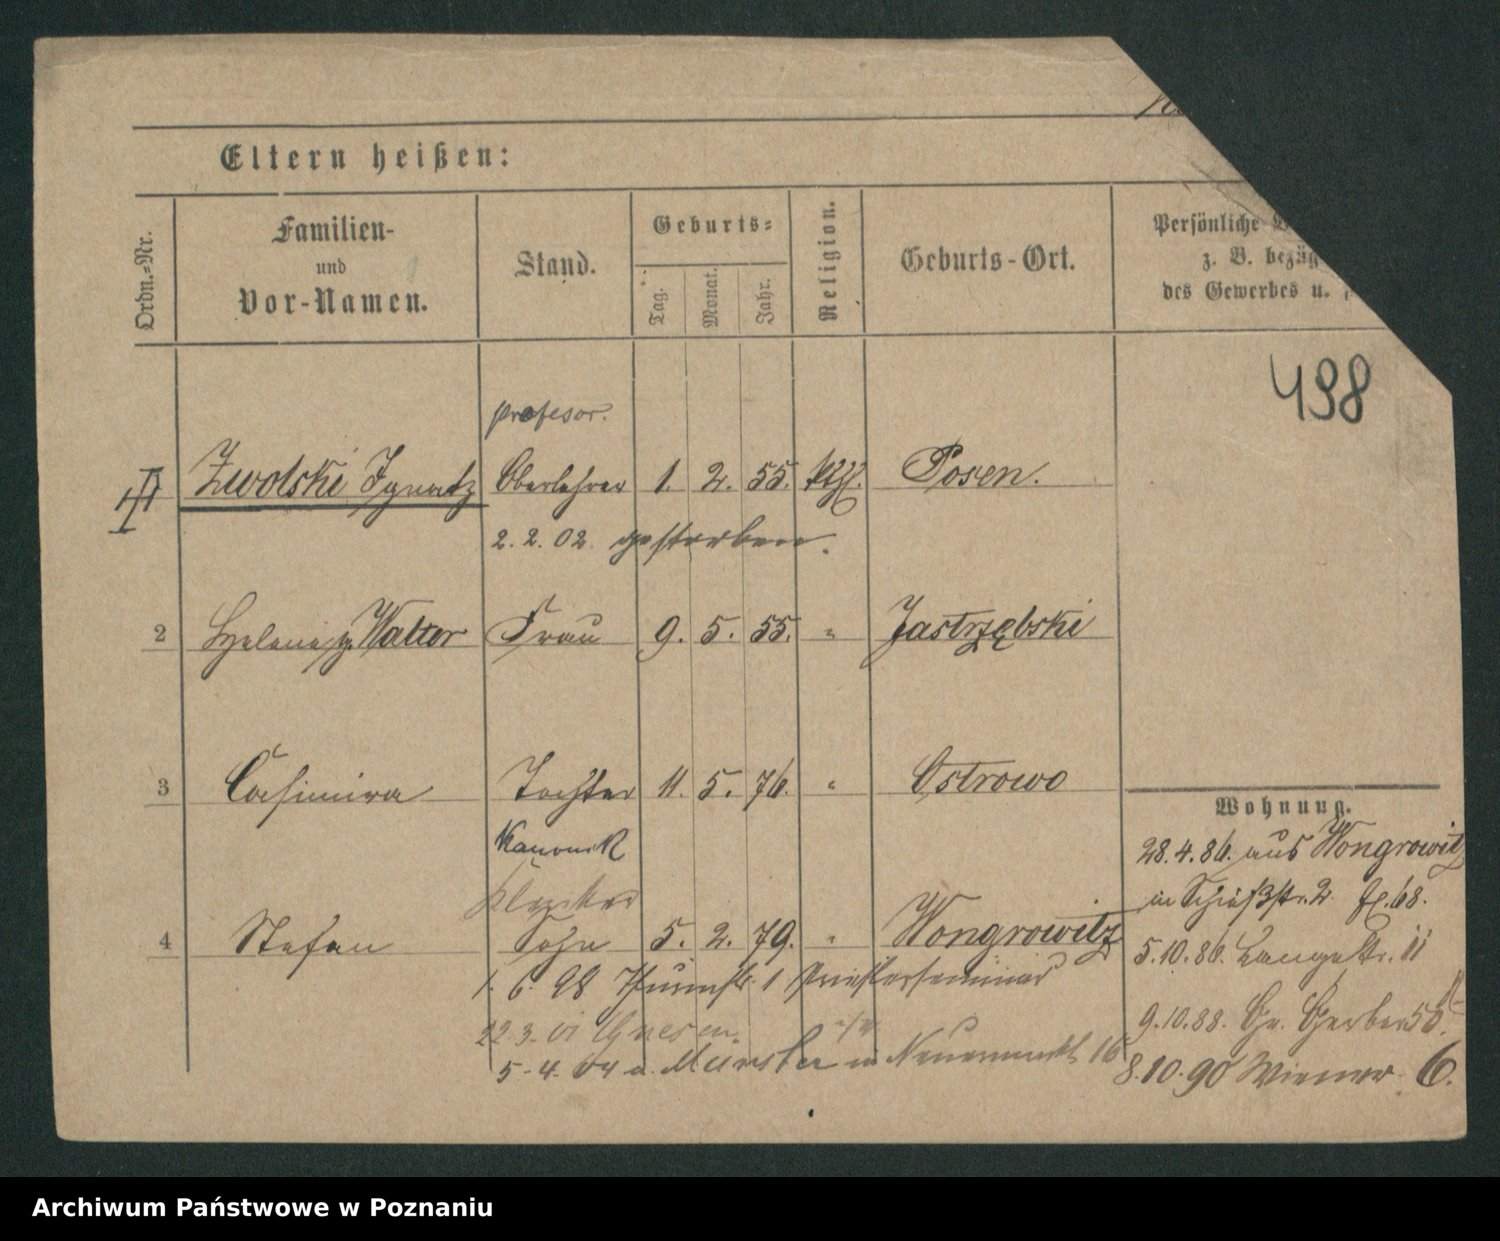 Eltern heißen:
Ordn.-Nr.
Familien-
und
Vor-Namen.
Stand.
Geburts-
Tag.
Monat.
Jahr.
Religion.
Geburts-Ort.
Persönliche
z. B. bezüg
des Gewerbes u.
498
profesor.
Zwolski Ignatz Oberlehrer 1. 2. 55. kth. Posen.
2. 2. 02. gestorben.
2 Helene g. Walter Frau 9. 5. 55. " Jastrzębski
3 Casimira Tochter 11. 5. 76. " Ostrowo
Kanonik
Kleriker
4 Stefan Sohn 5. 2. 79. " Wongrowitz
1. 6. 98 Thurmstr. 1 Priesterseminar
22.3. 01 Gnesen.
5. 4. 04 a. Münster in Neuermarkt 16
Wohnung.
28. 4. 86. aus Wongrowitz
in Schießstr. 2. 68.
5. 10. 86. Langestr. 11
9. 10. 88. Gr. Gerber 55.
8. 10. 90 Wiener 6.
Archiwum Państwowe w Poznaniu